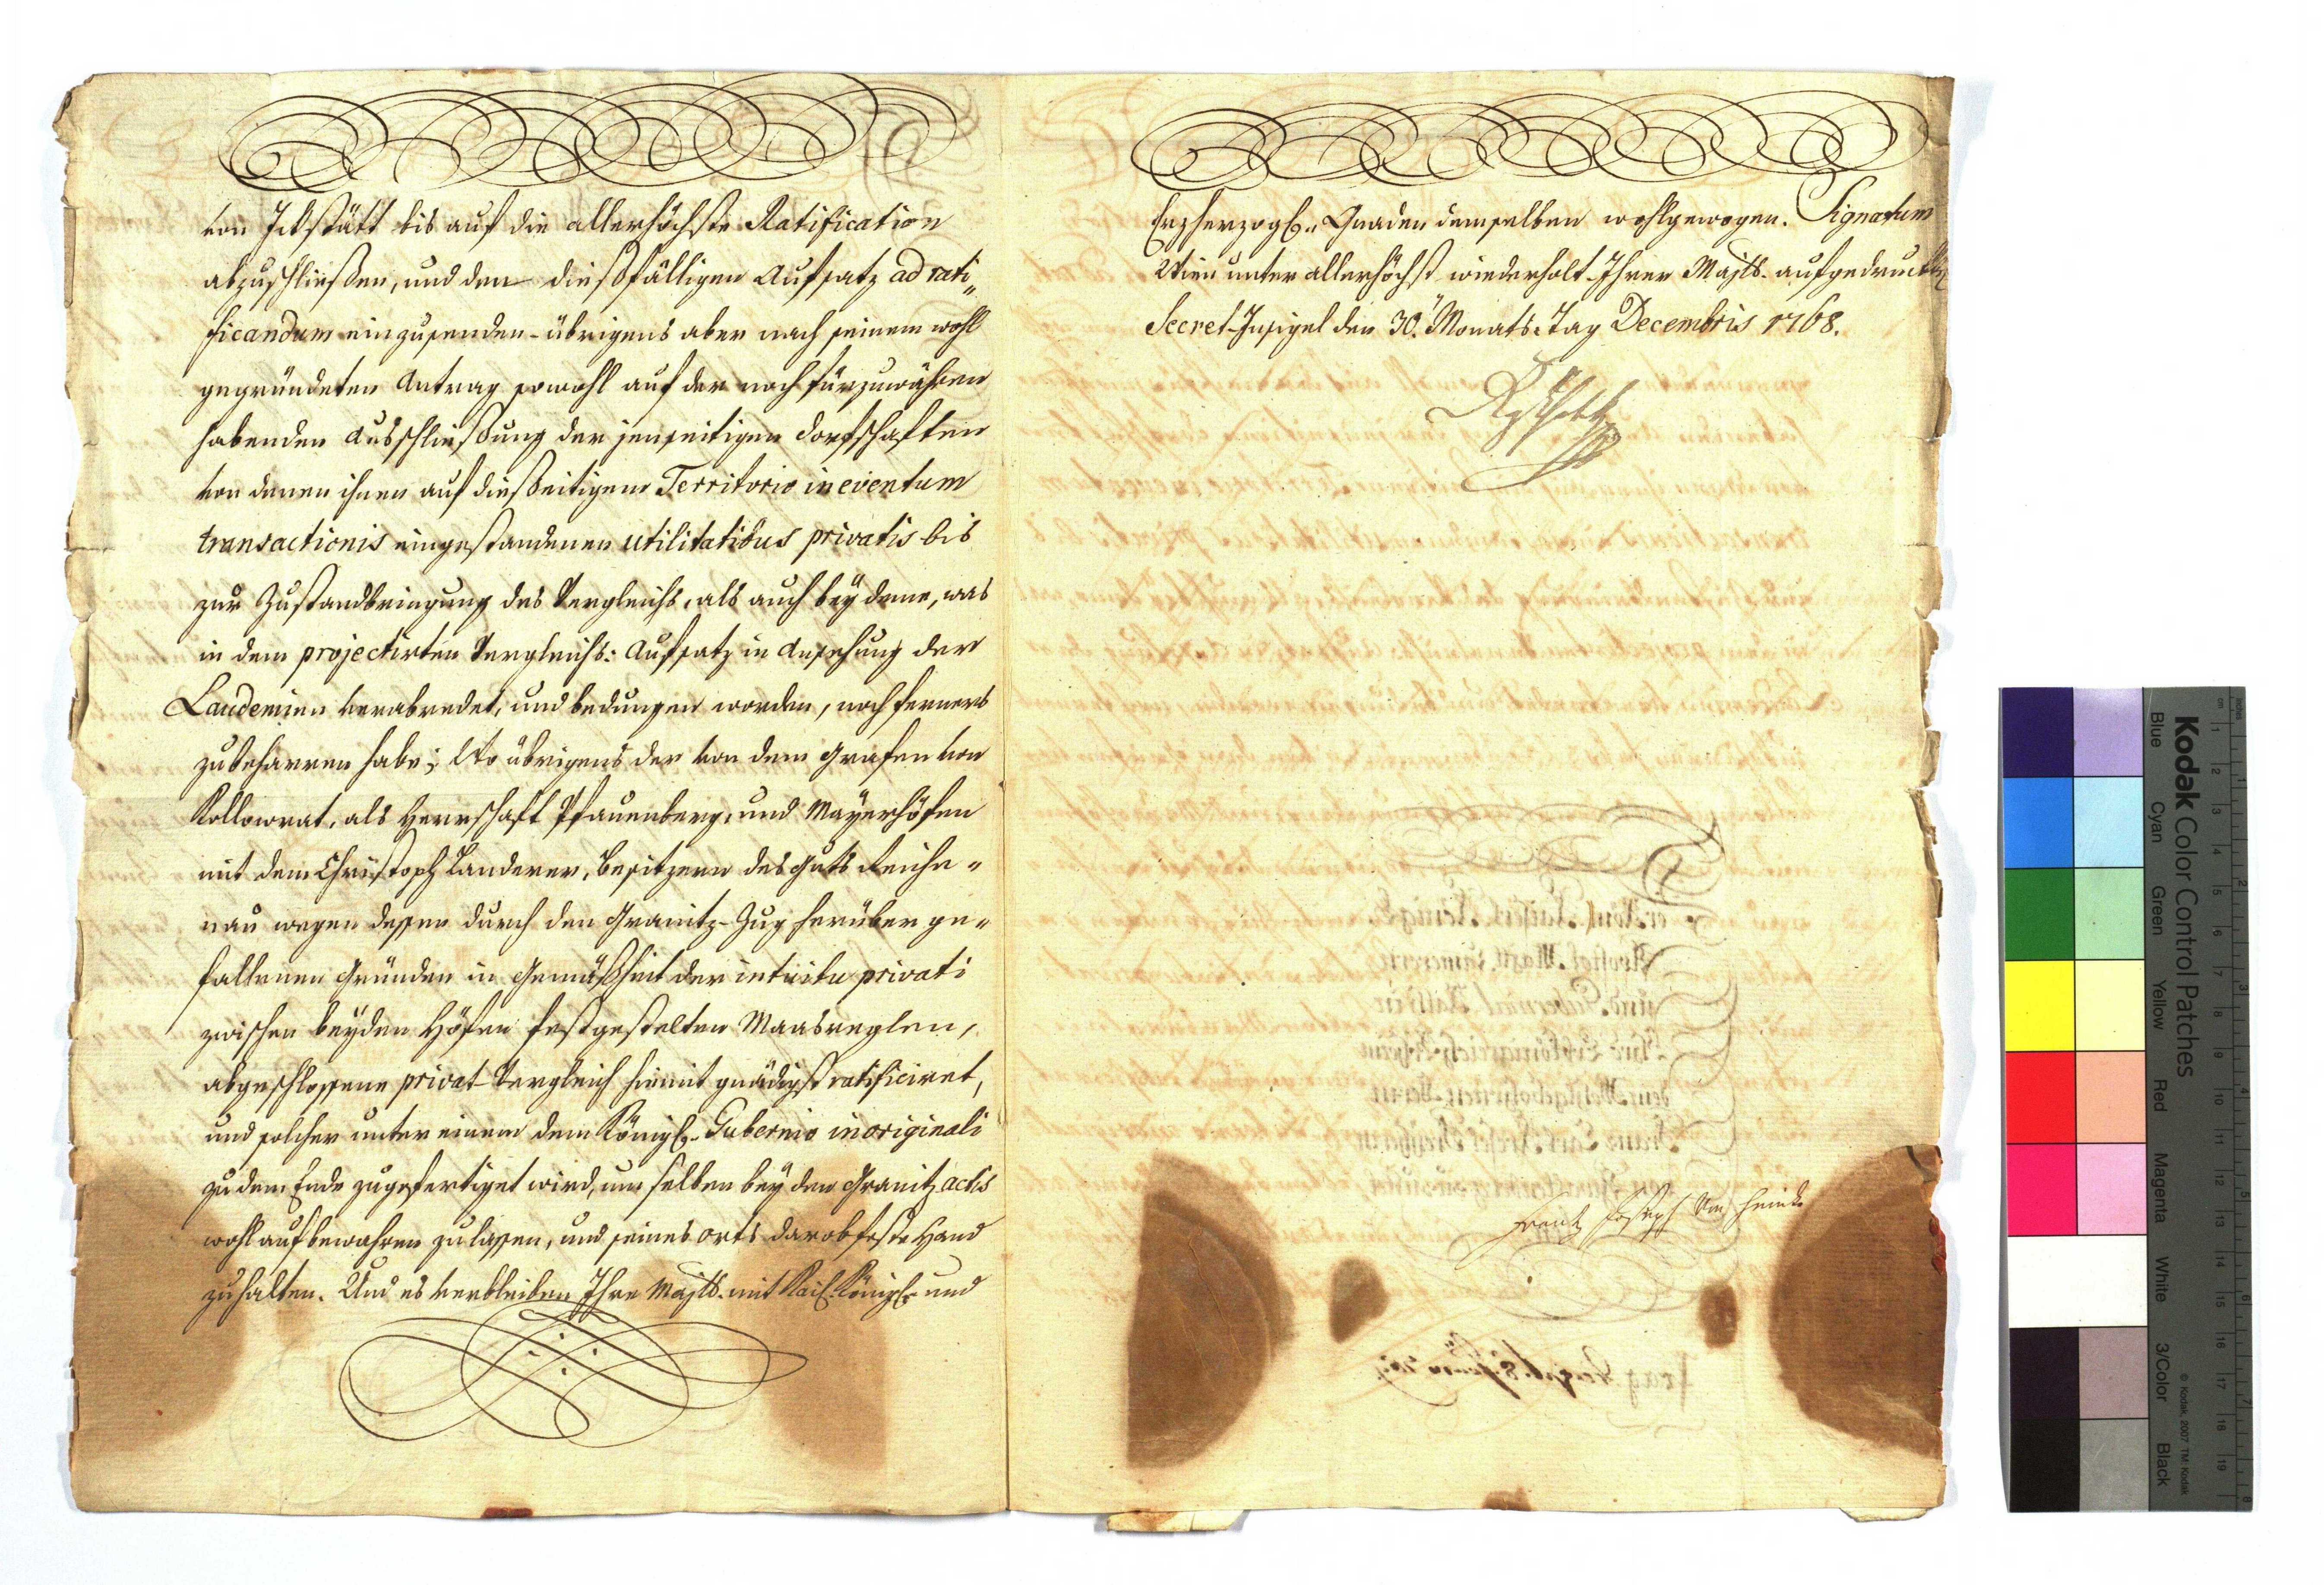 von Ickstätt bis auf die allerhöchste Ratification
abzuschließen, und den dießfälligen Aufsatz ad rati„
ficandum einzusenden übrigens aber nach seinem wohl
gegründeten Antrag sowohl auf der noch fürzuwähren
habenden Ausschließung der jenseitigen Dorfschaften
von denen ihnen auf dießeitigem Territorio in eventum
transactionis eingestandenen utilitatibus privatis bis
zur Zustandbringung des Vergleichs, als auch bey deme, was
in dem projectirten Vergleichs: Aufsatz in Ansehung der
Laudemien verabredet, und bedungen worden, noch ferners
zu beharren habe; Wo übrigens der von dem Grafen von
Kollowrat, als Herrschaft Pfauenberg, und Mayerhöfen
mit dem Christoph Landerer, Besitzern des Guts Reiche„
nau wegen dessen durch den Granitz-Zug herüber ge„
fallenen Gründen in Gemäßheit der intuitu privati
zwischen beyden Höfen festgestelten Maasreglen,
abgeschlossene privat-Vergleich hiemit gnädigst ratificiret,
und solcher unter einem dem Königl. Gubernio in originali
zu dem Ende zugefertiget wird, um selben bey den Granitz actis
wohl aufbewahren zu lassen, und seines Orts darob feste Hand
zu halten. Und es verbleiben Ihre Majtt. mit Kais. Königl. und
Erzherzogl. Gnaden demselben wohlgewogen. Signatum
Wien unter allerhöchst wiederholt-Ihrer Majtt. aufgedruckten
Secret-Insigel den 30. Monats-Tag Decembris 1768.
Frantz Joseph von Heinke
Kodak Color Control Patches
Blue Cyan Green Yellow Red Magenta White 3/Color Black
© Kodak, 2007 TM: Kodak